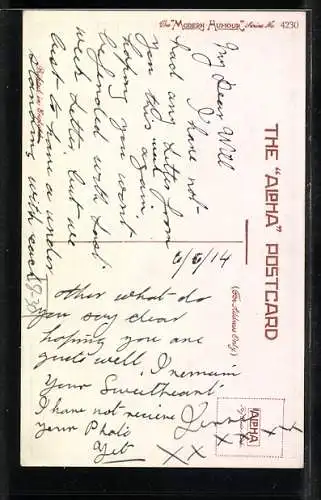 The "Modern Humour" Series No 4230
THE "ALPHA" POSTCARD
(For Address Only)
ALPHA
Printed in England
6/5/14
My Dear Will
I have not
had any letter from
you this week
hoping you wont
be cold with last
week letter, but we
but to have a under
standing with each
other what do
you say dear
hoping you are
quite well, I remain
Your Sweetheart
I have not recieve
your Photo
Yet
X X X X